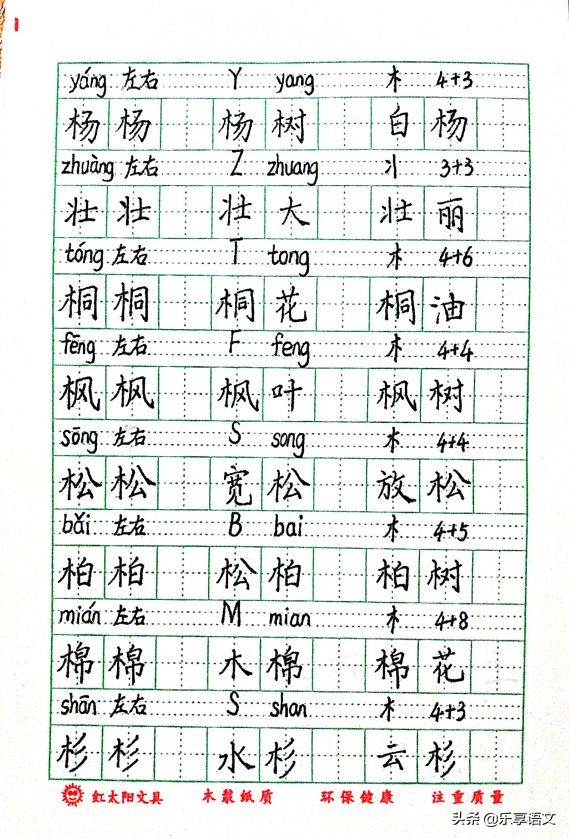 yáng 左右 Y yang 木 4+3
杨 杨 杨 树 白 杨
zhuàng 左右 Z zhuang 丬 3+3
壮 壮 壮 大 壮 丽
tóng 左右 T tong 木 4+6
桐 桐 桐 花 桐 油
fēng 左右 F feng 木 4+4
枫 枫 枫 叶 枫 树
sōng 左右 S song 木 4+4
松 松 宽 松 放 松
bǎi 左右 B bai 木 4+5
柏 柏 松 柏 柏 树
mián 左右 M mian 木 4+8
棉 棉 木 棉 棉 花
shān 左右 S shan 木 4+3
杉 杉 水 杉 云 杉
红太阳文具 木浆纸质 环保健康 注重质量
头条 @乐享语文